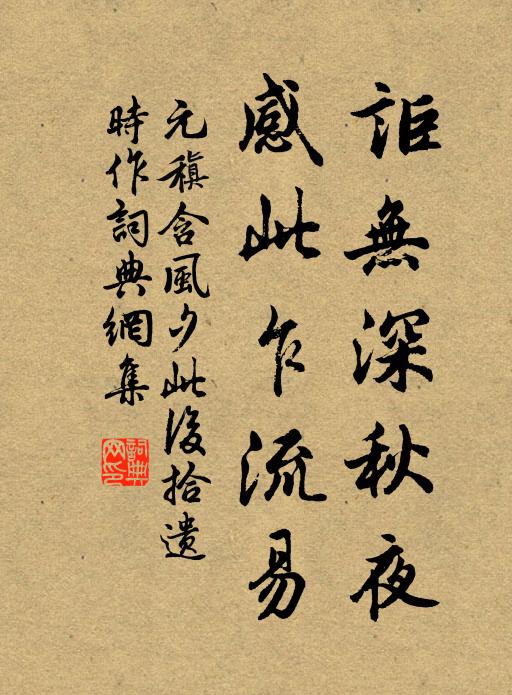 詎無深秋夜
感此乍流易
元稹含風夕此後拾遺
時作詞典網集
詞典
网印